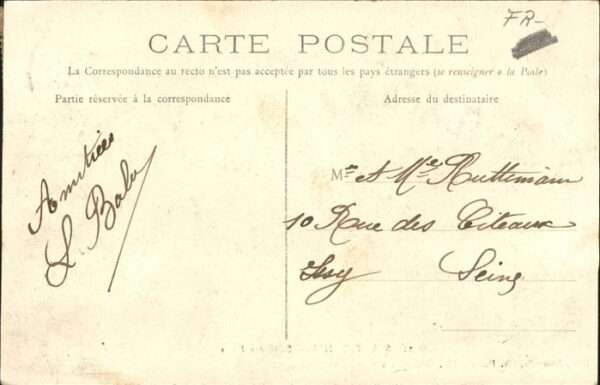 FR-
CARTE POSTALE
La Correspondance au recto n'est pas acceptée par tous les pays étrangers (se renseigner à la Poste)
Partie réservée à la correspondance
Adresse du destinataire
Amitiées
L. Balu
Mr et Mme Ruttimann
10 Rue des Citeaux
Issy Seine